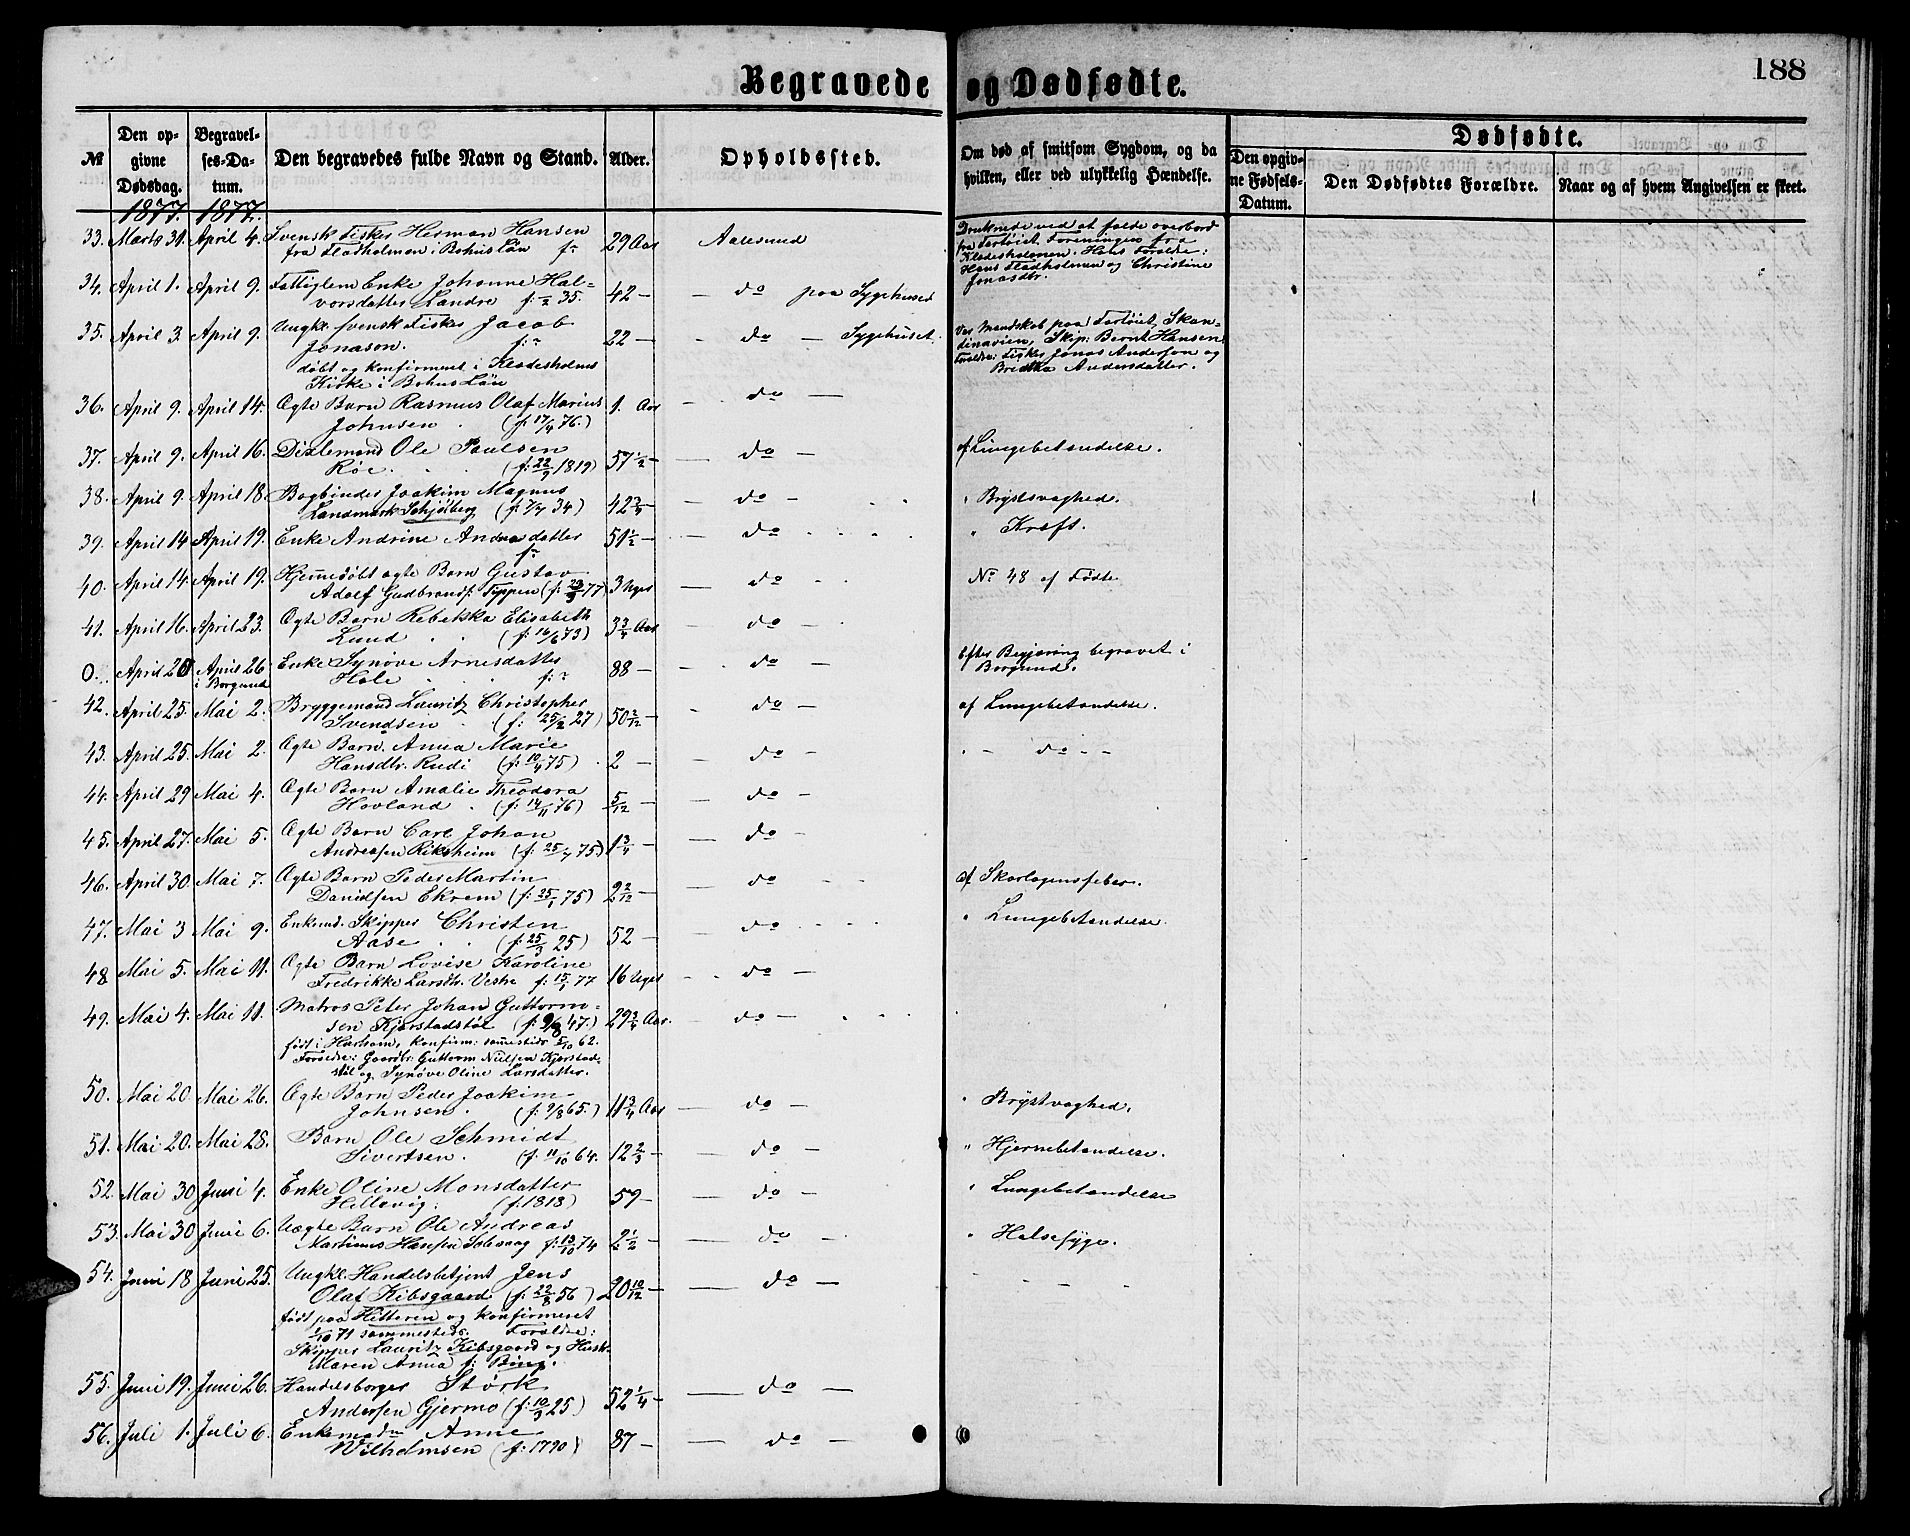 Begravede og Dødfødte.
188
№
Den opgivne Dødsdag.
Begravelses-Datum.
Den begravedes fulde Navn og Stand.
Alder.
Opholdssted.
Om død af smitsom Sygdom, og da hvilken, eller ved ulykkelig Hændelse.
Dødfødte.
Den opgivne Fødsels-Datum.
Den Dødfødtes Forældre.
Naar og af hvem Angivelsen er skeet.
1877. 1877.
33. Marts 31. April 4. Svensk Fisker Herman Hansen 29 Aar Aalesund Druknede ved at falde overbord
fra Fladholmen i Bohus Län f. fra Fartøiet Foreningen fra
Kladesholmen. Hans Forældre:
Hans Fladholmen og Christine
Jonasdtr.
34. April 1. April 9. Fattiglem Enke Johanne Hal-
vorsdatter Landre f. 35. 42 — — do paa Sygehuset
35. April 3. April 9. Ungkl. svensk Fisker Jacob 22 — — do — Sygehuset. Var Mandskab paa Fartøiet Skan-
Jonason. f. dinavien, Skip: Bernt Hansen
døbt og konfirmeret i Kladesholmens Forældre: Fisker Jonas Anderson og
Kirke i Bohus Län Andersdatter.
36. April 9. April 14. Ægte Barn Rasmus Olaf Marius 1. Aar — do —
Johnsen (f. 17/4 76.)
37. April 9. April 16. Ole Paulsen 57 1/2 — — do — af Lungebetændelse.
Røe. (f. 22/9 1819)
38. April 9. April 18. Bogbinder Joakim Magnus 42 3/4 — — do — " Brystsvaghed.
Landmark Schjølberg (f. 7/7 34)
39. April 14 April 19. Enke Andrine Andersdatter 51 1/2 — — do — " Kræft.
40. April 14. April 19. Hjemmedøbt ægte Barn Gustav 3 Uger — do No 48 af Fødte
Adolf Gudbrands. Typpen (f. 23/3 77)
41. April 16. April 23. Ægte Barn Rebekka Elisabeth 3 3/4 Aar — do —
Lund (f. 16/6 73)
0. April 20 April 26. Enke Synøve Arnesdatter 88 — — do — Efter Begjæring begravet i
i Borgund Hole f: ? Borgund.
42. April 25. Mai 2. Bryggemand Lauritz Christopher 50 2/12 — — do — af Lungebetændelse.
Svendsen (f. 25/2 27)
43. April 25. Mai 2. Ægte Barn Anna Marie 2 — — do — — do —
Hansdtr. Rudi (f. 10/4 75)
44. April 29 Mai 4. Ægte Barn Amalie Theodora 5/12 — — do —
Hovland (f. 14/11 76)
45. April 27. Mai 5. Ægte Barn Carl Johan 1 3/4 — — do —
Andreasen Riksheim (f. 25/7 75)
46. April 30 Mai 7. Ægte Barn Peder Martin 2 2/12 — — do — af Skarlagensfeber.
Danielsen Ekrem (f. 25/1 75)
47. Mai 3 Mai 9. Enkemd. Skipper Christen 52 — — do — " Lungebetændelse.
Aase (f. 25/3 25)
48 Mai 5. Mai 11. Ægte Barn Lovise Karoline 16 Uger — do —
Fredrikke Larsdtr. Vestre f: 15/1 77
49. Mai 4. Mai 11. Matros Peter Johan Guttorm- 29 3/4 Aar. — do —
sen Kjærstadstøl (f. 9/8 47.)
født i Harham, konfirm: sammesteds 5/10 62.
Forældre: Gaardbr. Guttorm Nielsen Kjærstad-
støl og Synøve Oline Larsdatter.
50. Mai 20 Mai 26. Ægte Barn Peder Joakim 11 3/4 Aar — do — " Brystsvaghed.
Johnsen. (f. 9/8 65.)
51. Mai 20. Mai 28. Barn Ole Schmidt 12 2/3 — — do — " Hjernebetændelse.
Sivertsen. (f. 11/10 64.
52. Mai 30 Juni 4. Enke Oline Monsdatter 59 — — do — " Lungebetændelse
Hillevig. (f. 1818)
53. Mai 30 Juni 6. Uægte Barn Ole Andreas 2 1/2 — — do — " Halssyge.
Martinus Hansen Solevaag f. 13/10 74
54. Juni 18 Juni 25. Ungkl. Handelsbetjent Jens 20 10/12 — — do —
Olaf Kibsgaard (f. 22/8 56)
født paa Hitteren og konfirmeret
1/10 71 sammesteds. Forældre:
Skipper Lauritz Kibsgaard og Hustr.
Maren Anna f: Bing.
55. Juni 19. Juni 26. Handelsborger Størk 52 1/4 — — do —
Andersen Gjermo (f. 10/3 25)
56. Juli 1. Juli 6. Enkemadm Anne 87 — — do —
Wilhelmsen (f. 1790)